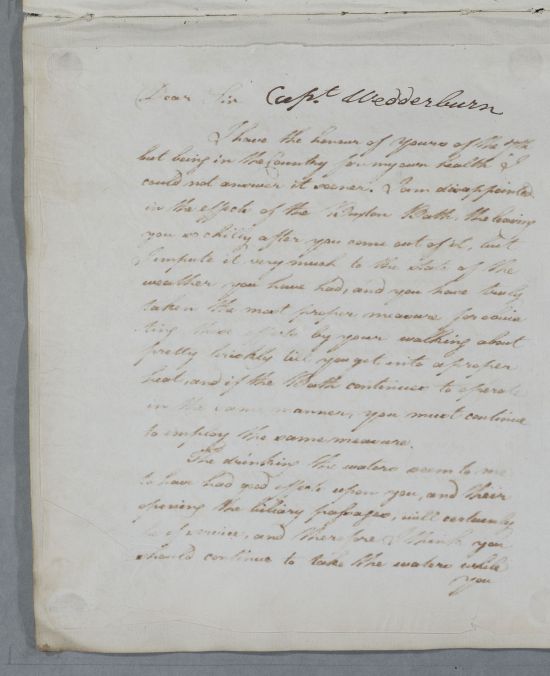 Dear Sir Capt. Wedderburn
I have the honour of Yours of the 7th
but being in the Country for my own health I
could not answer it sooner. I am disappointed
in the effects of the Buxton Bath, the leaving
you so chilly after you come out of it, but
I impute it very much to the state of the
weather you have had, and you have truly
taken the most proper measure for obvia
ting these effects by your walking about
pretty briskly till you get into a proper
heat, and if the Bath continues to operate
in the same manner, you must continue
to employ the same measure.
The drinkin the waters seem to me
to have had good effects upon you, and their
opening the biliary passages, will certainly
be of service, and therefore I think you
should continue to take the waters while
you